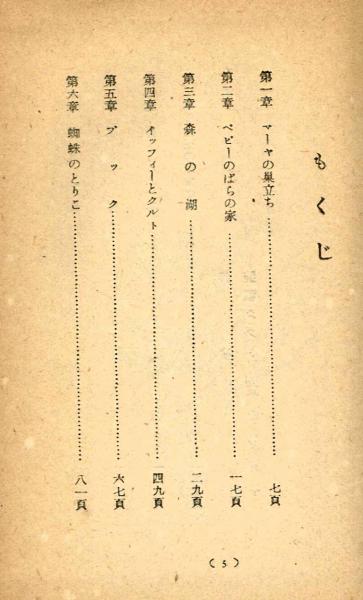 もくじ
第一章 マーヤの巣立ち……………………七頁
第二章 ペピーのばらの家……………………一七頁
第三章 森の湖……………………二九頁
第四章 イッフィーとクルト……………………四九頁
第五章 プック……………………六七頁
第六章 蜘蛛のとりこ……………………八一頁
(5)